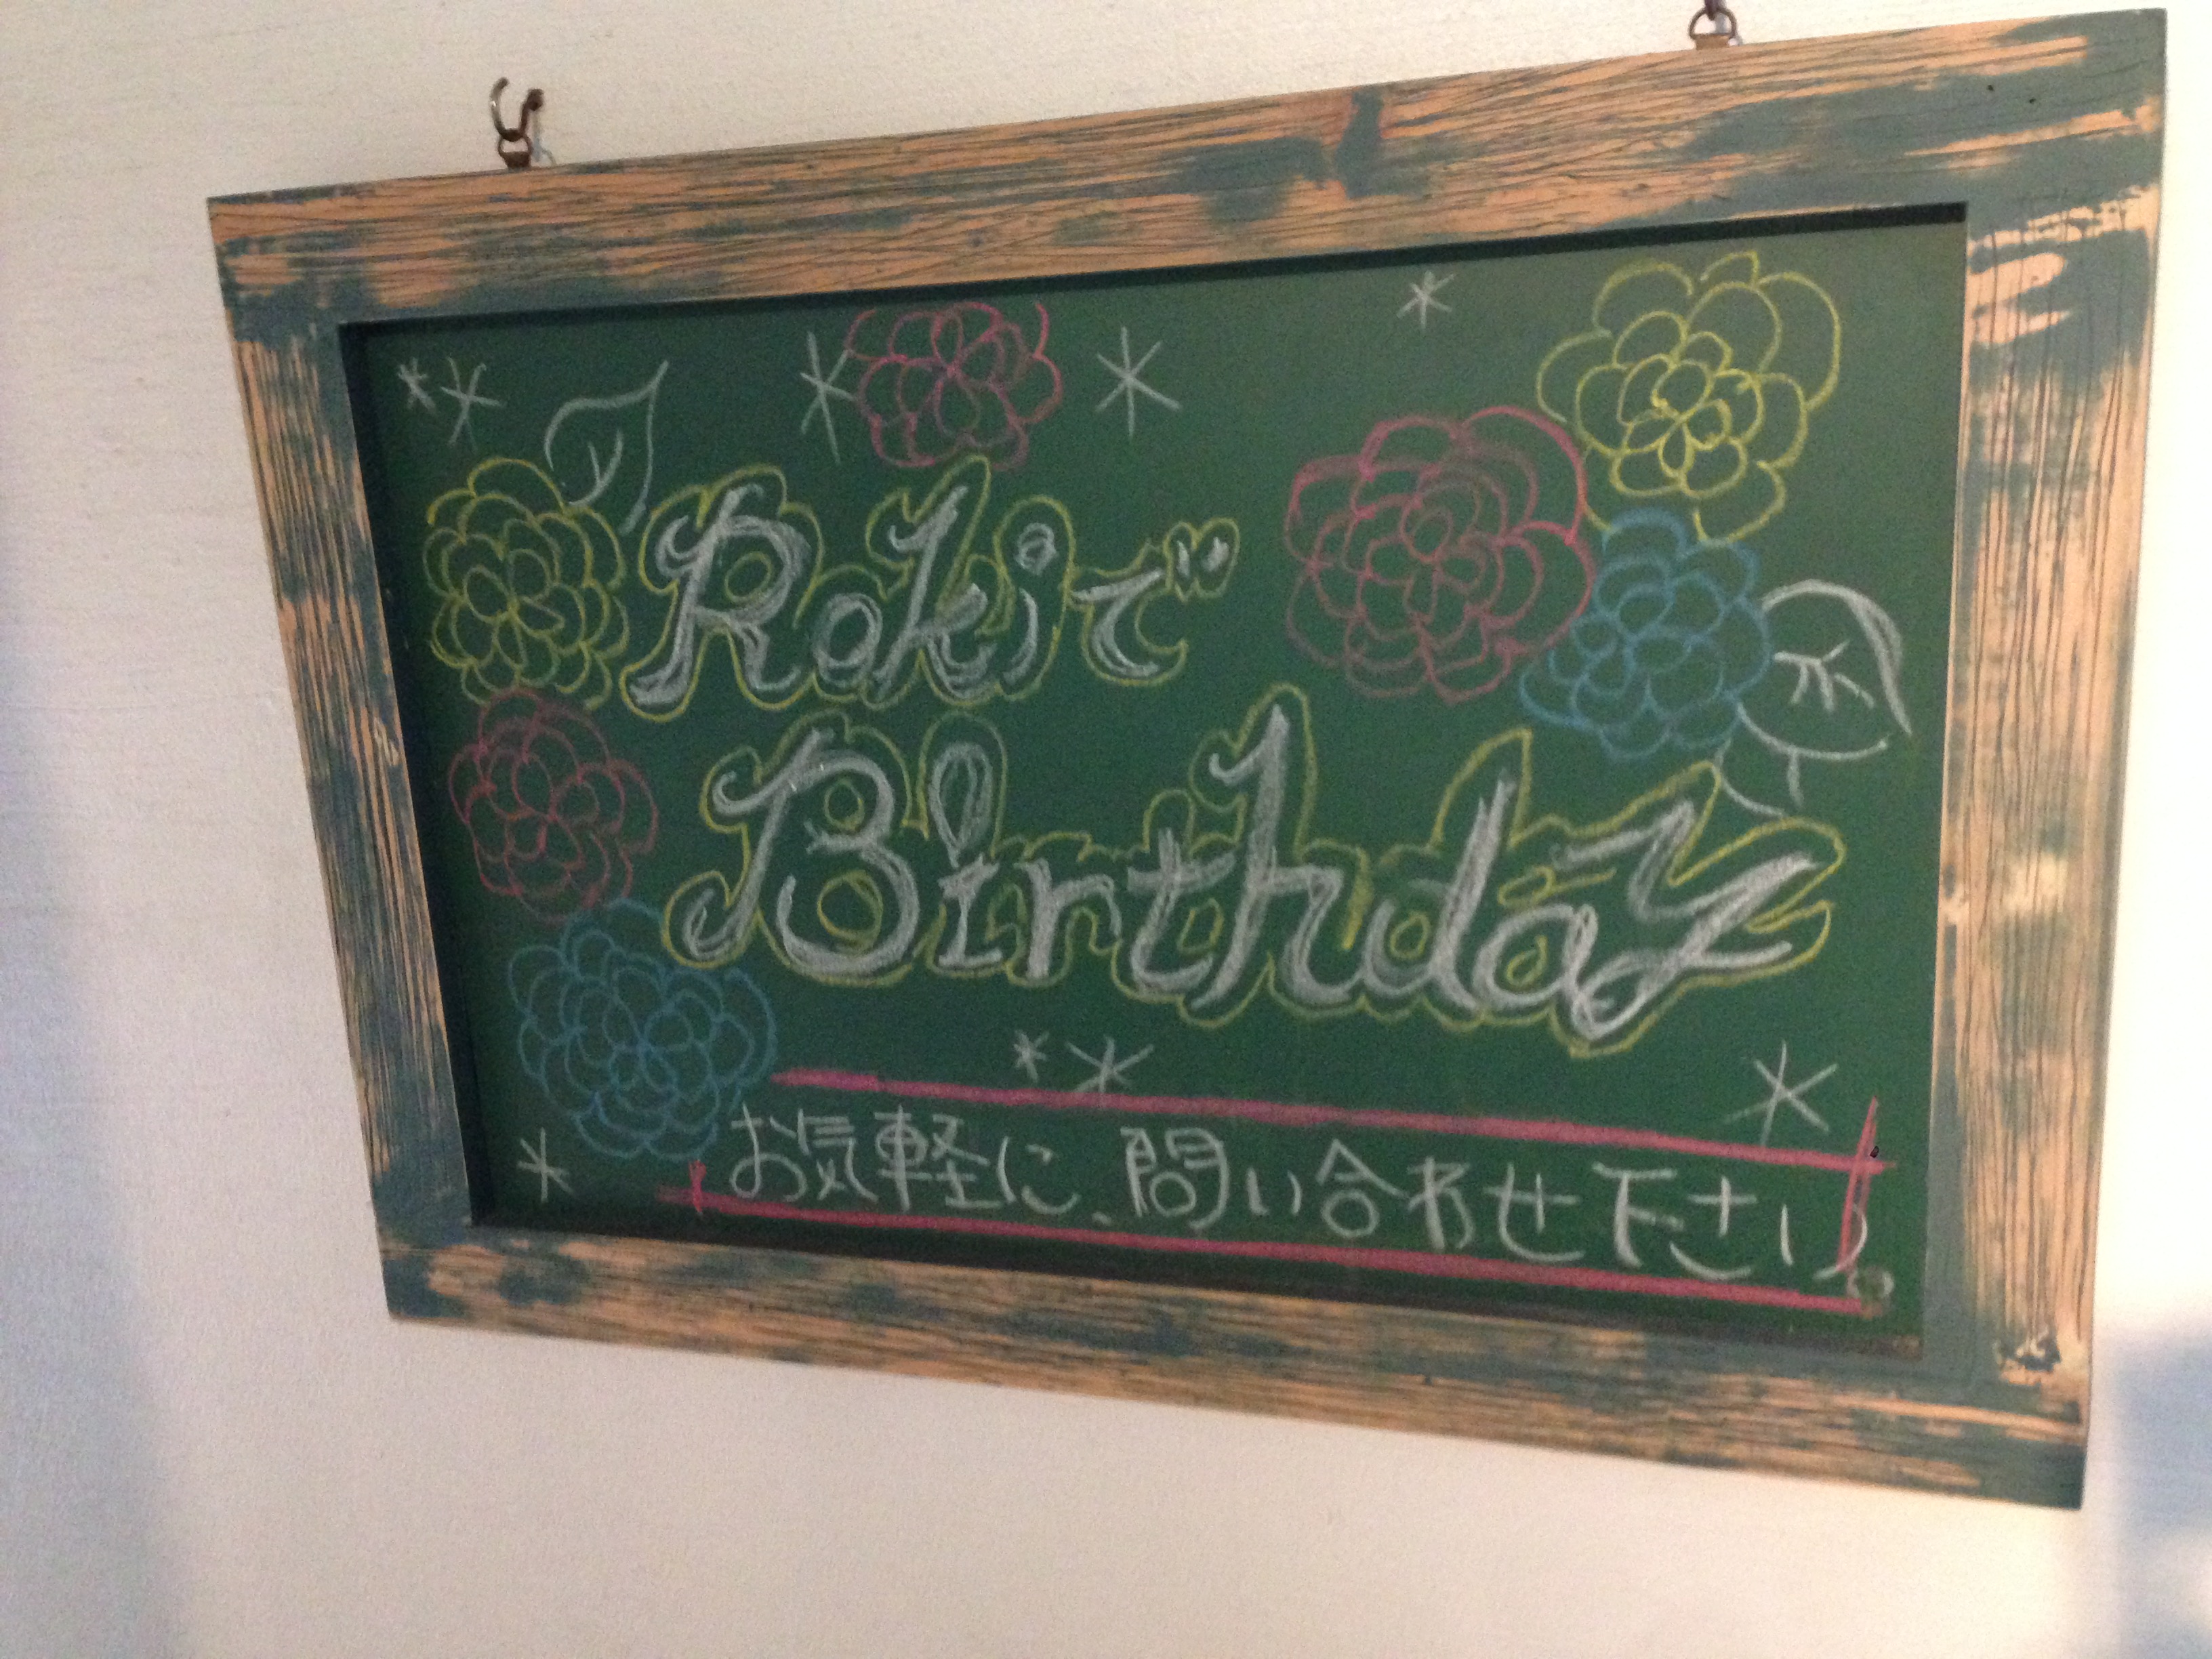 Rokiで
Birthday
お気軽に、問い合わせ下さい。